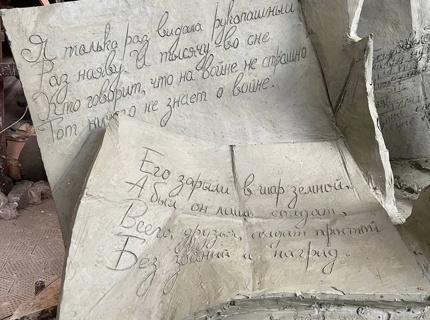 Я только раз видала рукопашный
Раз наяву. И тысячу - во сне
Кто говорит, что на войне не страшно
Тот ничего не знает о войне.
Его зарыли в шар земной,
А был он лишь солдат,
Всего, друзья, солдат простой
Без званий и наград.